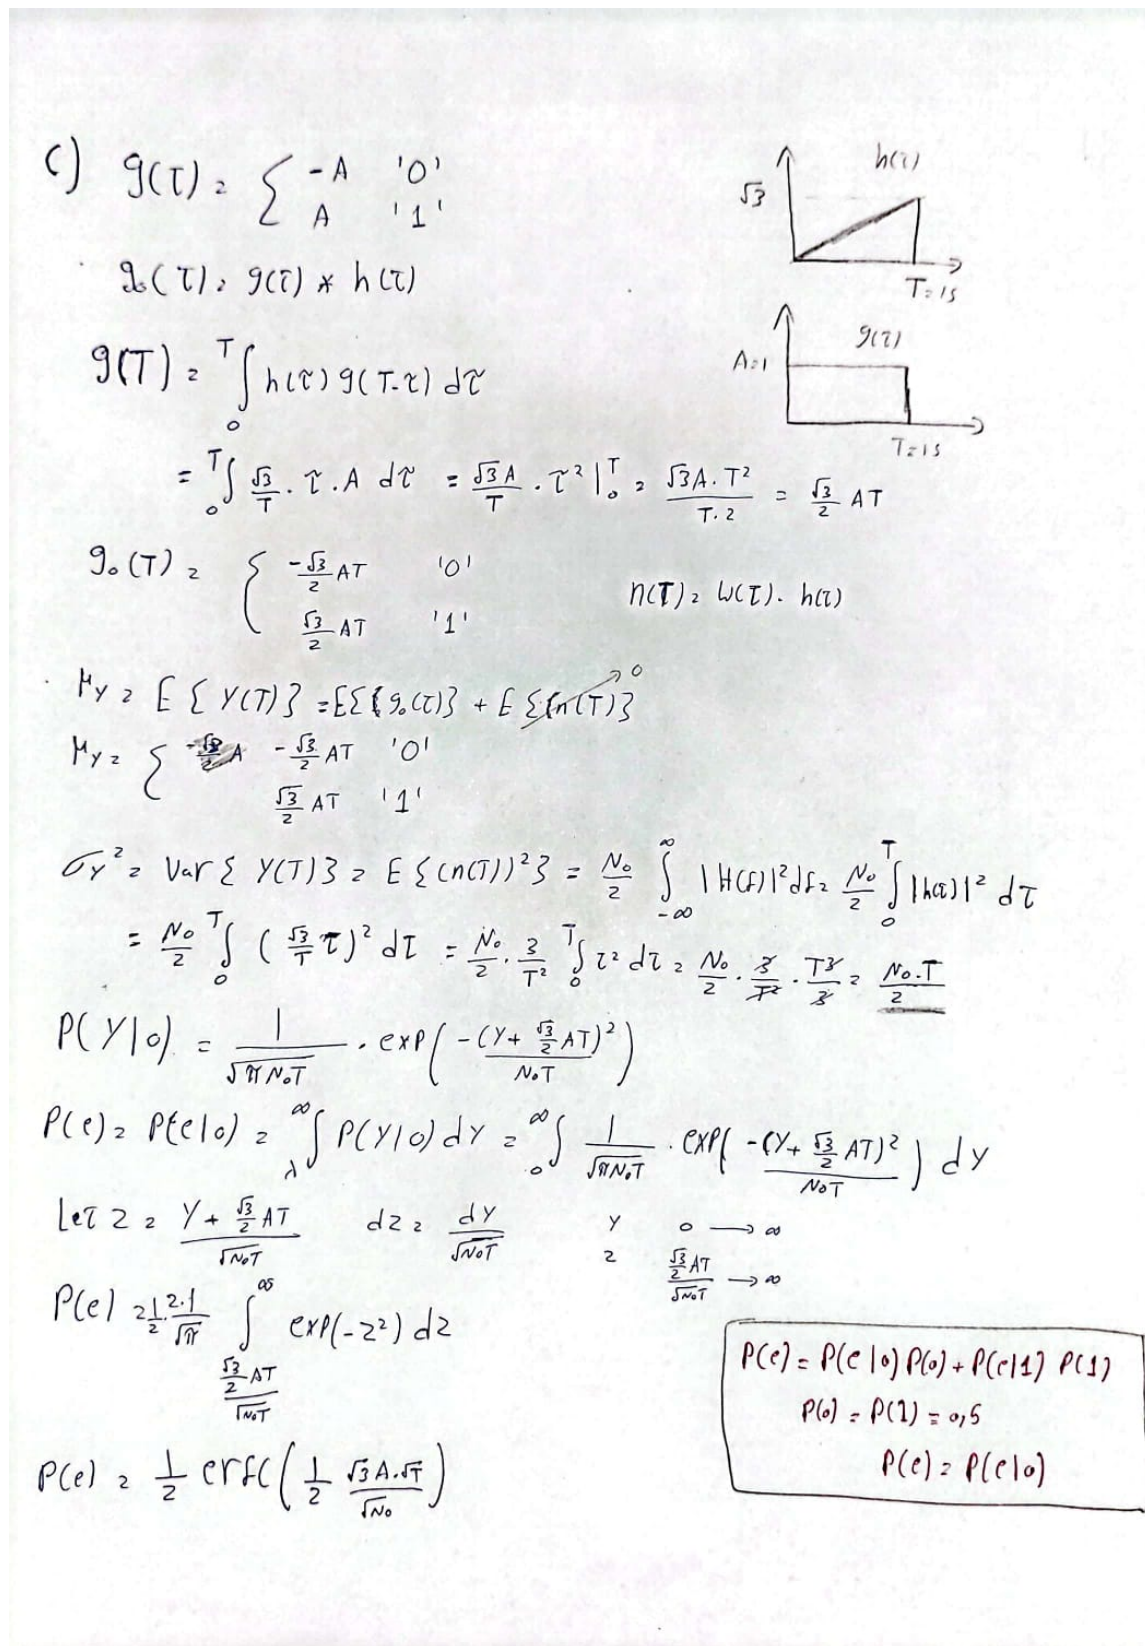 c) g(t) = { -A '0'
A '1'
h(t)
√3
T=1s
g₀(t) = g(t) * h(t)
g(t)
A=1
T=1s
g(T) = ᵀ∫₀ h(τ) g(T-τ) dτ
= ᵀ∫₀ √3/T . τ . A dτ = √3A/T . τ² |₀ᵀ = √3A.T²/T.2 = √3/2 AT
g₀(T) = { -√3/2 AT '0'
√3/2 AT '1'
n(T) = w(t) . h(t)
μy = E{Y(T)} = E{{g₀(t)} + E{(n(T)} → 0
μy = { -√3/2 AT '0'
√3/2 AT '1'
σy² = Var{Y(T)} = E{(n(T))²} = N₀/2 ∫₋∞^∞ |H(f)|² df = N₀/2 ∫₀ᵀ |h(t)|² dτ
= N₀/2 ᵀ∫₀ (√3/T τ)² dτ = N₀/2 . 3/T² ᵀ∫₀ τ² dτ = N₀/2 . 3/T² . T³/3 = N₀.T/2
P(Y|0) = 1/√πN₀T . exp( -(Y+ √3/2 AT)²/N₀T )
P(e) = P(e|0) = ∞∫λ P(Y|0) dY = ∞∫₀ 1/√πN₀T . exp( -(Y+ √3/2 AT)²/N₀T ) dY
Let z = Y + √3/2 AT/√N₀T dz = dY/√N₀T Y 0 → ∞
z √3/2 AT/√N₀T → ∞
P(e) = 1/2 . 2.1/√π ∫^∞ exp(-z²) dz
√3/2 AT/√N₀T
P(e) = P(e|0) P(0) + P(e|1) P(1)
P(0) = P(1) = 0,5
P(e) = P(e|0)
P(e) = 1/2 erfc( 1/2 √3 A.√T/√N₀ )